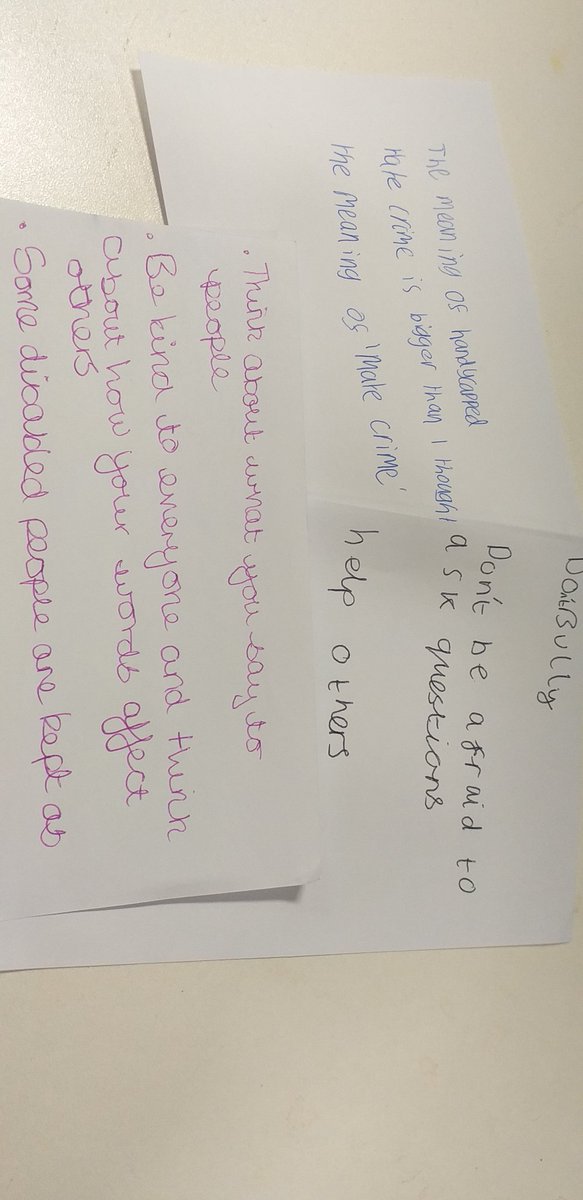 Don't Bully
The meaning of handycapped
Hate crime is bigger than I thought
the meaning of 'Mate crime'
Don't be afraid to
ask questions
help others
• Think about what you say to
people
• Be kind to everyone and think
about how your words affect
others
• Some disabled people are kept as